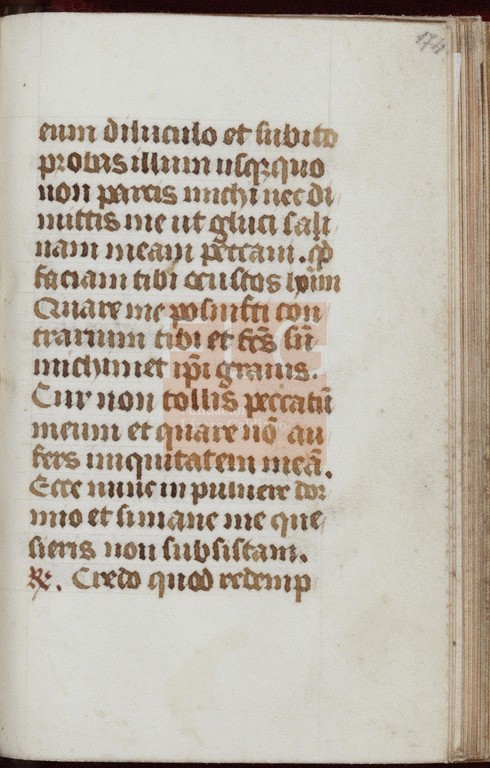 174
eum diluculo et subito
probas illum usq̨quo
non parcis michi nec di/
mittis me ut gluci sali
uam meam peccaui. qͥd
faciam tibi o custos hoı̄m
Quare me posuisti con
trarium tibi et fc̄s sū
michimet ip̄i grauis.
Cur non tollis peccatū
meum et quare nō au
fers iniquitatem meā.
Ecce nunc in puluere dor
mio et si mane me que/
sieris non subsistam.
℟. Credo quod redemp